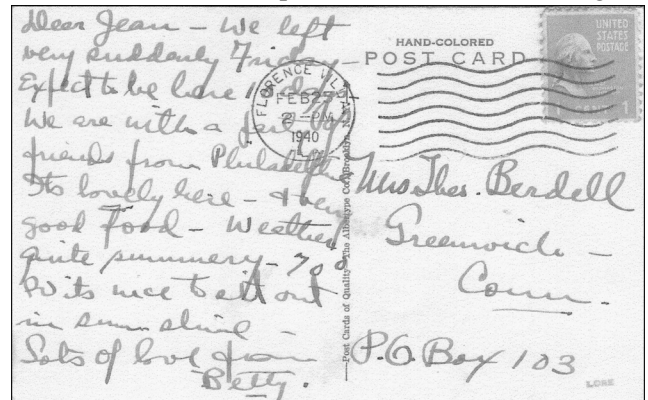 Dear Jean - We left
very suddenly Friday -
Expect to be here 10 days
We are with a few
friends from Philadelphia
Its lovely here - & very
good food - Weather
quite summery - 70°
so its nice to sit out
in sunshine -
Lots of love from
Betty.
HAND-COLORED
POST CARD
UNITED
STATES
POSTAGE
1
FLORENCE VILLA
FEB 25
2 - PM
1940
Post Cards of Quality - The Albertype Co., Brooklyn, N.Y.
Mrs Thos. Berdell
Greenwich -
Conn.
P.O. Box 103